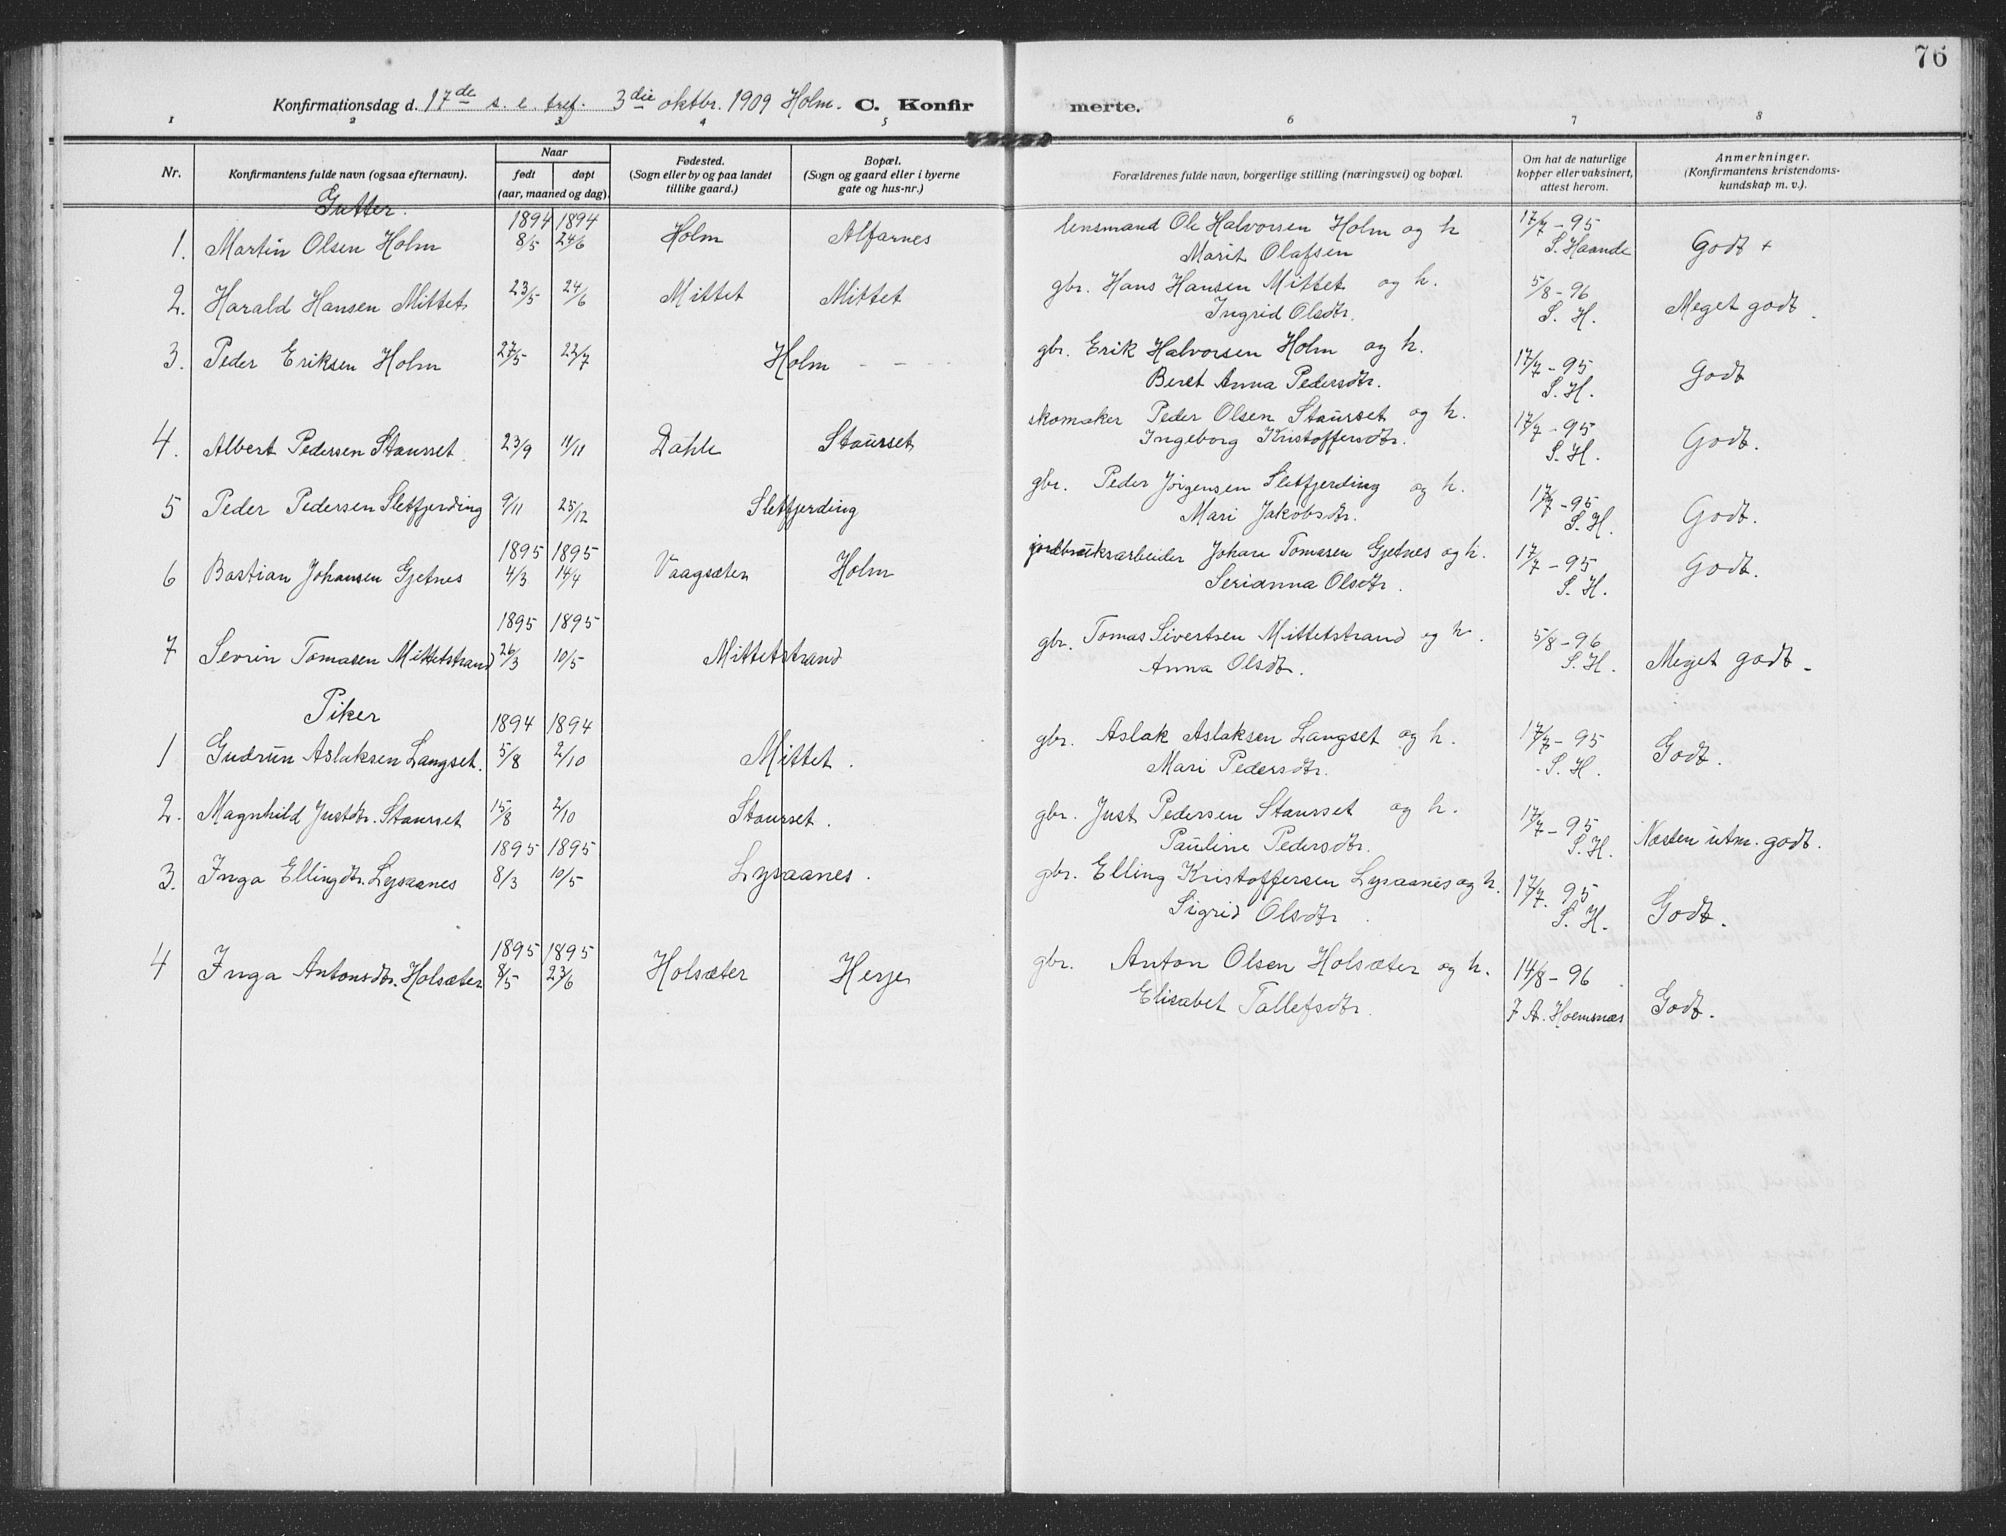 76
Konfirmationsdag d. 17de s. e. tref. 3die oktbr. 1909 Holm. C. Konfirmerte.
1 2 3 4 5 6 7 8
Nr. Konfirmantens fulde navn (ogsaa efternavn). Naar født døpt (aar, maaned og dag). Fødested. (Sogn eller by og paa landet tillike gaard.) Bopæl. (Sogn og gaard eller i byerne gate og hus-nr.) Forældrenes fulde navn, borgerlige stilling (næringsvei) og bopæl. Om hat de naturlige kopper eller vaksinert, attest herom. Anmerkninger. (Konfirmantens kristendomskundskap m. v.).
Gutter.
1894 1894
1. Martin Olsen Holm 8/5 24/6 Holm Alfarnes lensmand Ole Halvorsen Holm og h Marit Olafsen 17/7 - 95 S. Haande Godt +
2. Harald Hansen Mittet 23/5 24/6 Mittet Mittet gbr. Hans Hansen Mittet og h. Ingrid Olsdtr. 5/8 - 96 S. H. Meget godt.
3. Peder Eriksen Holm 27/5 22/7 Holm gbr. Erik Halvorsen Holm og h. Beret Anna Pedersdtr. 17/7 - 95 S. H. Godt
4. Albert Pedersen Staurset 23/9 11/11 Dahle Staurset skomaker Peder Olsen Staurset og h. Ingeborg Kristoffersdtr. 17/7 - 95 S. H. Godt.
5 Peder Pedersen Sletfjerding 9/11 25/12 Sletfjerding gbr. Peder Jørgensen Sletfjerding og h. Mari Jakobsdtr. 17/7 - 95 S. H. Godt.
1895 1895
6 Bastian Johansen Gjetnes 4/3 14/4 Vaagsæter Holm jordbruksarbeider Johan Tomasen Gjetnes og h. Serianna Olsdtr. 17/7 - 95 S. H. Godt.
1895 1895
7 Sevrin Tomasen Mittetstrand 26/3 10/5 Mittetstrand gbr. Tomas Sivertsen Mittetstrand og h. Anna Olsdtr. 5/8 - 96 S. H. Meget godt -
Piker
1894 1894
1 Gudrun Aslaksen Langset. 5/8 2/10 Mittet. gbr. Aslak Aslaksen Langset og h. Mari Pedersdtr. 17/7 - 95 S. H. Godt.
2. Magnhild Justdtr. Staurset 15/8 2/10 Staurset. gbr. Just Pedersen Staurset og h. Pauline Pedersdtr. 17/7 - 95 S. H. Næsten utm. godt.
1895 1895
3. Inga Ellingdtr. Lysaanes 8/3 10/5 Lysaanes. gbr. Elling Kristoffersen Lysaanes og h. Sigrid Olsdtr. 17/7. 95 S. H. Godt.
1895 1895
4 Inga Antonsdtr. Holsæter 8/5 23/6 Holsæter Herje gbr. Anton Olsen Holsæter og h. Elisabet Tollefsdtr. 14/8 - 96 F. A. Hoemsnæs Godt.